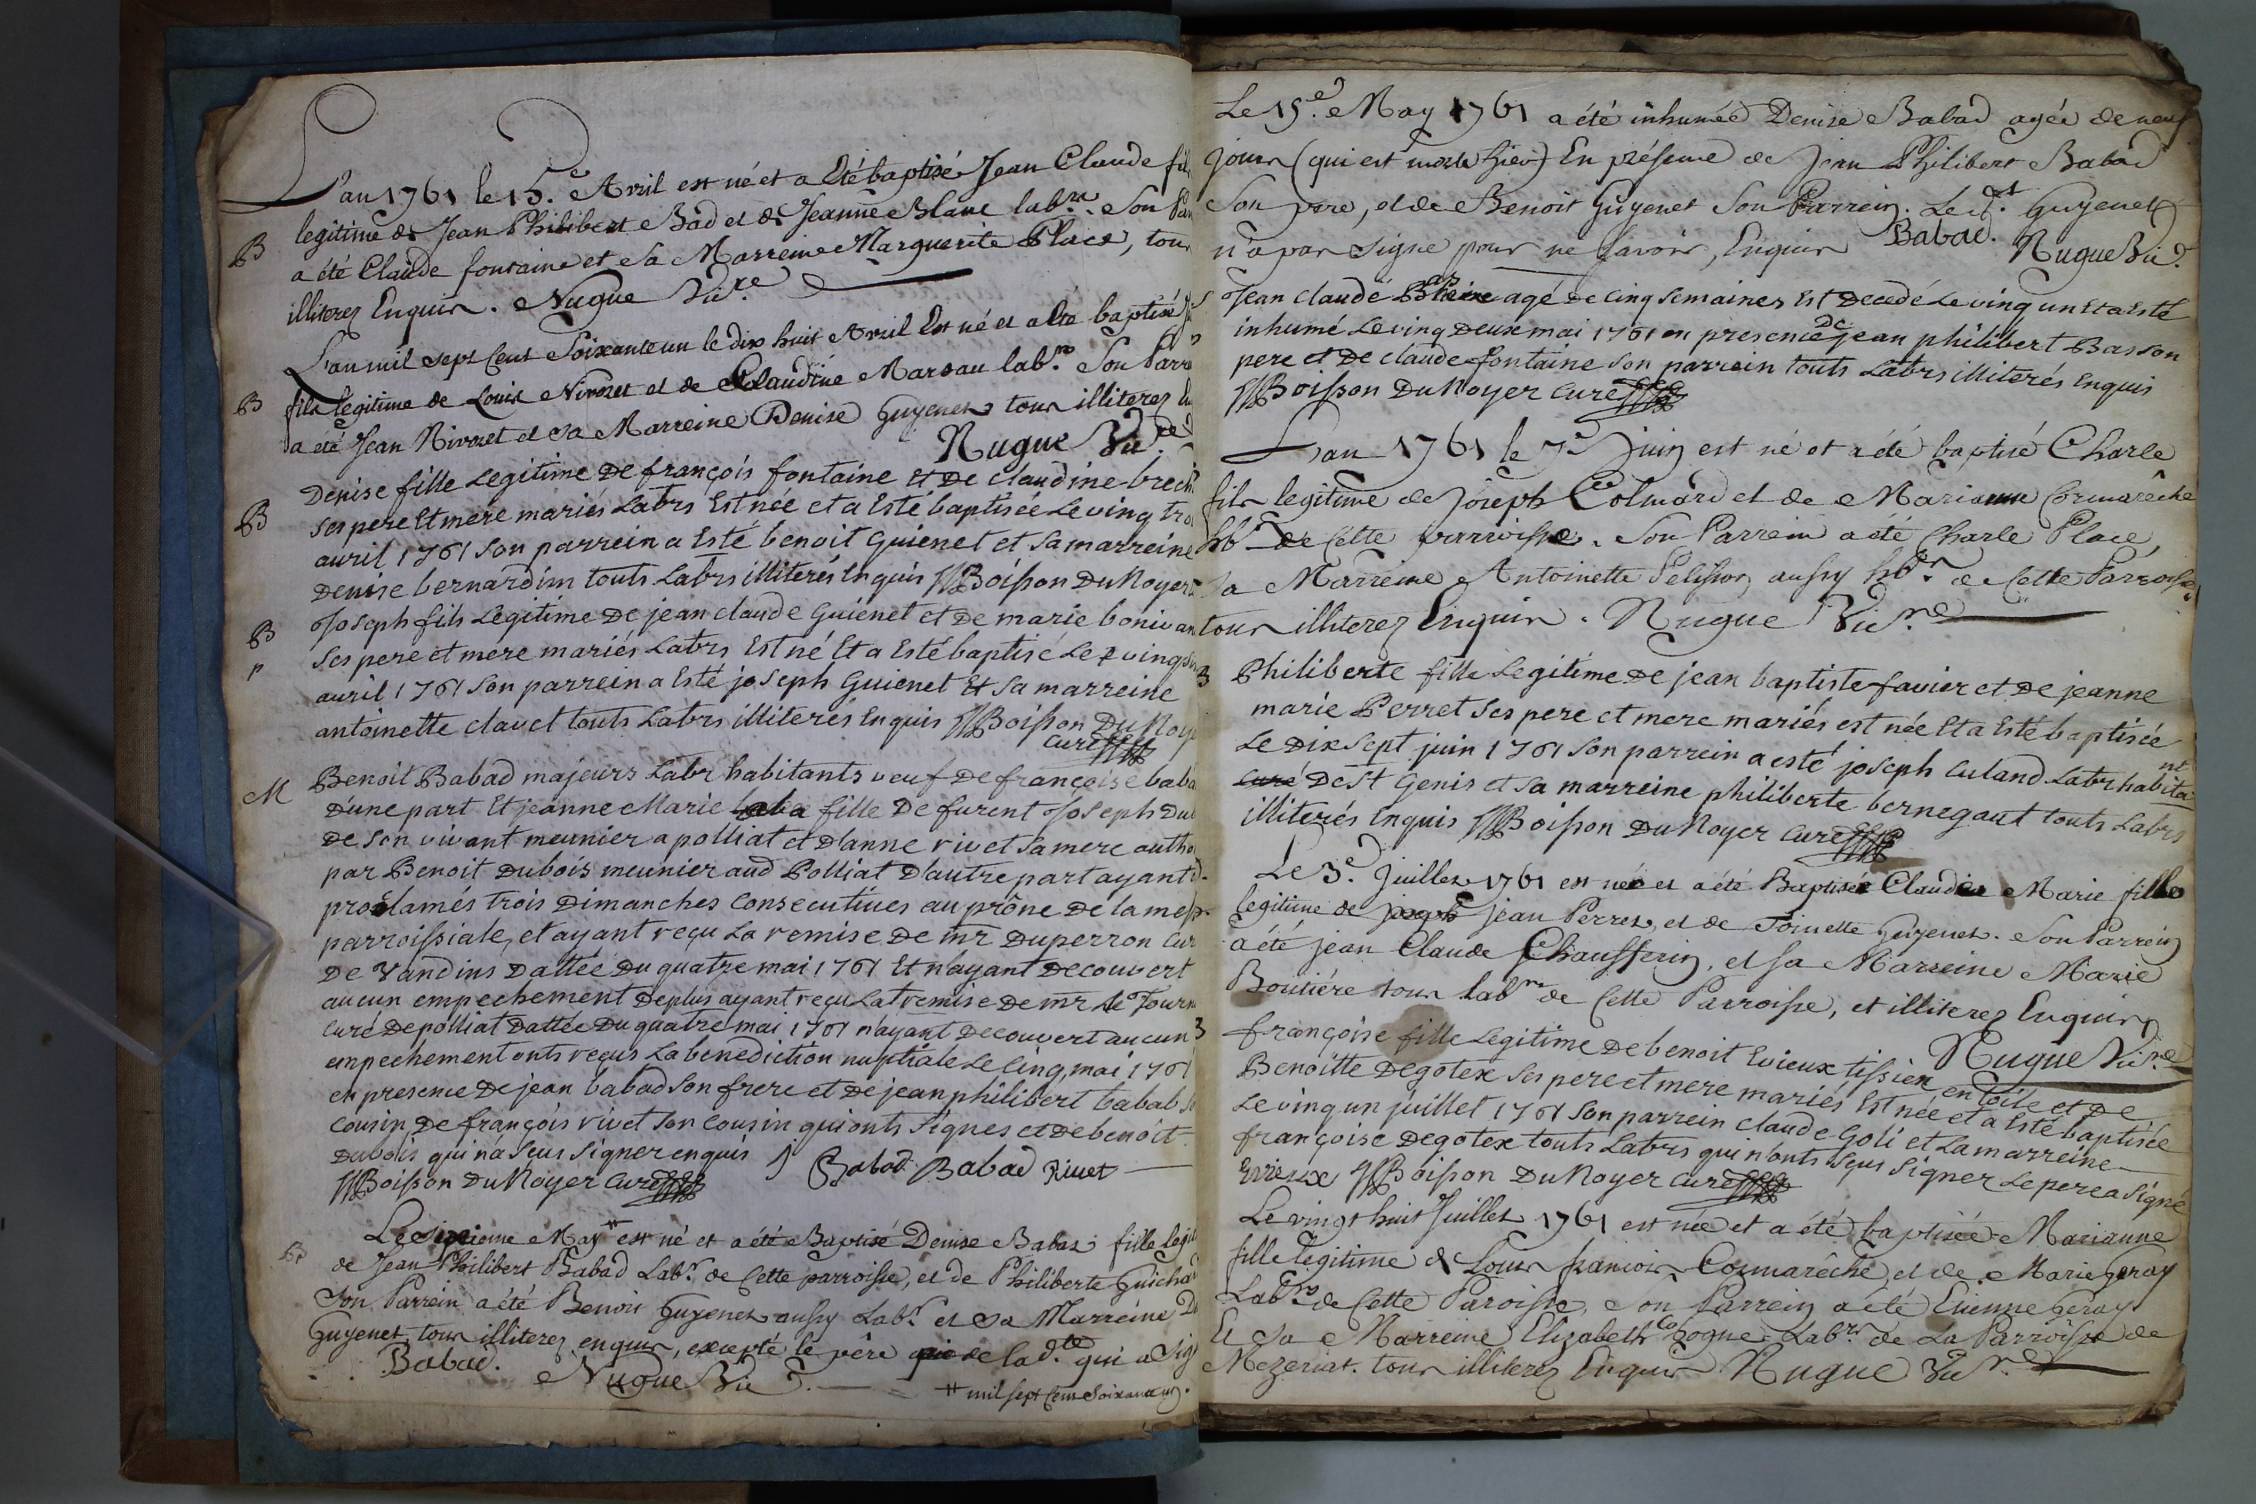 L'an 1761 le 15.e Avril est né et a été baptisé Jean Claude fils
legitime de Jean Philibert Bad et de Jeanne Blanc labrs. Son Par
B
a été Claude fontaine et sa Marreine Marguerite Place, tous
illiterez Enquis. Nugue Vicre
L'an mil sept Cent Soixante un le dix huit Avril Est né et a été baptisé
B
fils legitime de Louis Nivozet et de Claudine Marsau labrs. Son Parr
a été Jean Nivozet et sa Marreine Denise Guyenet tous illiterez
Nugue Vicre
Denise fille Legitime De françois fontaine Et De claudine brech
B
ses pere Et mere mariés Labrs Est née et a Esté baptisée Le vinq tro
avril 1761 son parrein a Esté benoit Guienet et sa marreine
Denise bernardin touts Labrs illiterés Enquis Boisson Du Noyer
Joseph fils Legitime De jean claude Guienet et De marie bonivan
B
ses pere et mere mariés Labrs Est né Et a Esté baptisé Le vinq
p
avril 1761 son parrein a Esté joseph Guienet Et sa marreine
antoinette clavet touts Labrs illiterés Enquis Boisson Du Noy
curé
M
Benoit Babad majeurs Labr habitants veuf De françoise baba
D'une part Et jeanne Marie baba fille De furent Joseph Du
De son vivant meunier a polliat et D'anne rivet sa mere autho
par Benoit Dubois meunier aud Polliat D'autre part ayant
proclamés trois Dimanches consecutives au prône De la mess
parroissiale, et ayant reçu La remise De mr Duperron cur
De Vandins Dattée Du quatre mai 1761 Et n'ayant Decouvert
aucun empechement Deplus ayant reçu La remise De mr Le Tourn
curé De polliat Dattée Du quatre mai 1761 n'ayant Decouvert aucun
empechement onts reçus La benediction nuptiale Le cinq mai 1761
en presence De jean babad son frere et De jean philibert babab
cousin, De françois rivet son cousin qui onts signés et De benoit
Dubois qui n'a sçus signer enquis
Babad Babad Rivet
Boisson Du Noyer curé
Le sixieme May # est né et a été Baptisé Denise Babad fille legit
de Jean Philibert Babad Labr. de Cette parroisse, et de Philiberte Guichar
Son Parrein a été Benoit Guyenet aussy Labr. et sa Marreine
Guyenet tous illiterez, enquis, excepté le père de lad.te qui a sig
Babad. Nugue Vic
# mil sept Cent Soixante un.
Le 15.e May 1761 a été inhumée Denise Babad agée de neuf
jours (qui est morte hier) En présence de Jean Philibert Babad
Son pere, et de Benoit Guyenet Son Parrein. Led.t Guyenet
n'a pas signé pour ne savoir, Enquis Babad. Nugue Vic
Jean Claude Bas agé De cinq semaines Est Decedé Le vinq un Et a Esté
inhumé Le vinq Deux mai 1761 en presence De jean philibert Bas son
pere et De claude fontaine son parrein touts Labrs illiterés Enquis
Boisson Du Noyer curé
L'an 1761 le 7e Juin est né et a été baptisé Charle
fils legitime de Joseph Colmard et de Marianne Cormarêche
hbs de Cette parroisse. Son Parrein a été Charle Place,
Sa Marreine Antoinette Pelisson aussy hbs de Cette Parroisse
tous illiterez Enquis. Nugue Vicre
B
Philiberte fille Legitime De jean baptiste favier et De jeanne
marie Perret ses pere et mere mariés est née Et a Esté baptisée
Le Dix sept juin 1761 son parrein a esté joseph culand Labr habitant
curé De St Genis et sa marreine philiberte bernegaut touts Labrs
illiterés Enquis Boisson Du Noyer curé
Le 3.e Juillet 1761 est née et a été Baptisée Claudine Marie fille
legitime de joseph jean Perret, et de Toinette Guyenet. Son Parrein
a été jean Claude Chausserin, et sa Marreine Marie
Boutiére tous labrs de Cette Parroisse, et illiterez Enquis
Nugue Vicre
B
françoise fille Legitime De benoit Evieux tissier en toile et De
Benoitte Degotex ses pere et mere mariés Est née et a Esté baptisée
Le vinq un juillet 1761 son parrein claude Goli et La marreine
françoise Degotex touts Labrs qui n'onts sçus signer Le pere a signé
Evieux Boisson Du Noyer curé
Le vingt huit Juillet 1761 est née et a été baptisée Marianne
fille legitime de Louis francois Cormarêche, et de Marie Geray
Labrs de Cette Paroisse, Son Parrein a été Etienne Geray
Et sa Marreine Elizabeth Cogne, Labrs de La Parroisse de
Mezeriat. tous illiterez Enquis Nugue Vicre